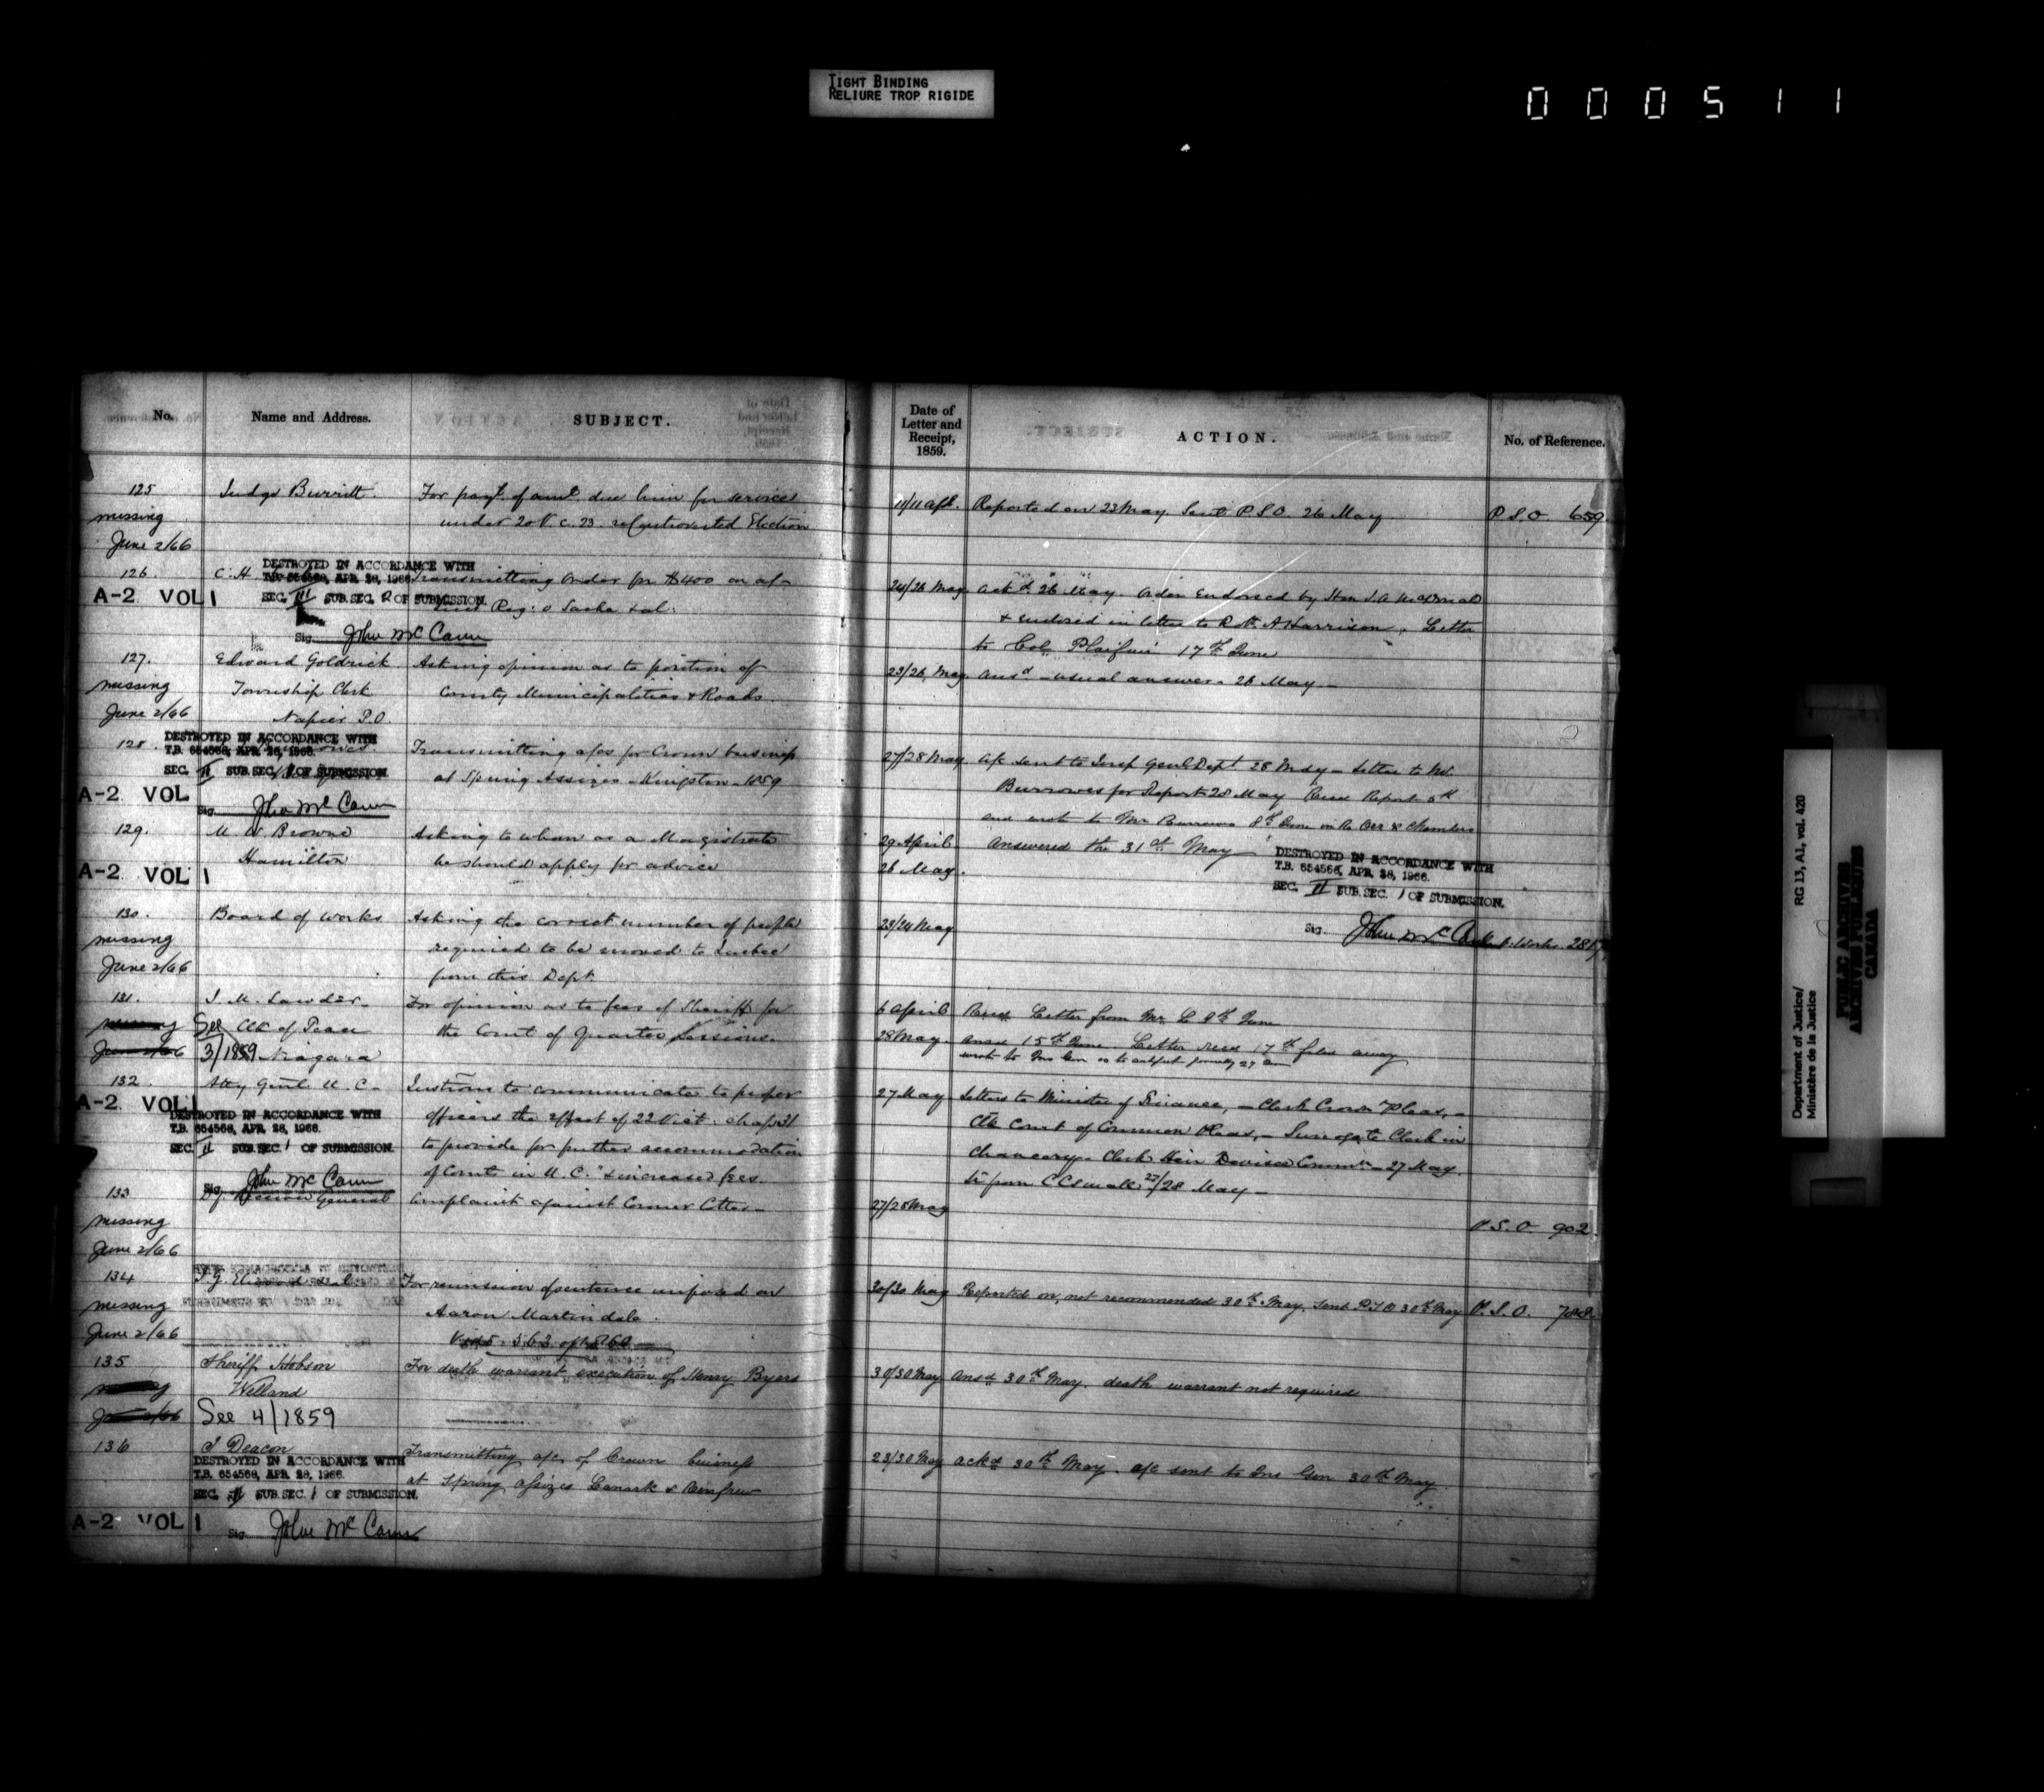 TIGHT BINDING
RELIURE TROP RIGIDE
000511
No.
Name and Address.
SUBJECT.
Date of
Letter and
Receipt,
1859.
ACTION.
No. of Reference.
125
Judge Burritt.
For payt. of amt. due him for services
11/11 Apl.
Reported on 23 May. Sent P.S.O. 26 May
P.S.O. 659
missing
under 20 V. c. 23 Controverted Election
June 2/66
126.
C. H.
DESTROYED IN ACCORDANCE WITH
T.B. 654568, APR. 28, 1966.
SEC. III SUB.SEC. 2 OF SUBMISSION.
Sig. John McCann
A-2 VOL 1
Transmitting order for $400 on a/c
Reg: v
24/26 May
Ackd. 26 May. Order Endorsed by Hon J. A.
& enclosed in letter to Robt. A Harrison. Letter
to Col. Playfair 17th June
127.
Edward Goldrick
Asking opinion as to position of
23/26 May
Ansd. - usual answer - 26 May -
missing
Township Clerk
County Municipalities & Roads
June 2/66
Napier P.O.
128.
DESTROYED IN ACCORDANCE WITH
T.B. 654568, APR. 28, 1966.
SEC. II SUB.SEC. 1 OF SUBMISSION.
Sig. John McCann
A-2 VOL
Transmitting a/cs for Crown business
at Spring Assizes - Kingston - 1859
27/28 May
A/c sent to Insp Genl Dept 28 May - Letter to Mr.
Burrowes for Report 28 May Recd Report
and wrote to Mr Burrowes 8th June in Chambers
129.
M W Browne
Asking to whom as a Magistrate
29 April
Answered the 31st May
Hamilton
he should apply for advice
26 May.
A-2 VOL 1
DESTROYED IN ACCORDANCE WITH
T.B. 654568, APR. 28, 1966.
SEC. II SUB.SEC. 1 OF SUBMISSION.
Sig. John McCann
130.
Board of Works
Asking the correct number of people
23/24 May
Works
missing
required to be moved to Quebec
June 2/66
from this Dept.
131.
J. M. Lawder
For opinion as to fees of Sheriff for
6 April
Recd Letter from Mr. L 9th June
missing
See Clk of Peace
the Court of Quarter Sessions.
28 May.
Ansd 15th June. Letter recd 17th filed away
June 2/66
3/1859 Niagara
132.
Atty Genl. U. C.
Instrons to communicate to proper
27 May
Letters to Minister of Finance, - Clerk Crown Pleas, -
A-2 VOL 1
DESTROYED IN ACCORDANCE WITH
T.B. 654568, APR. 28, 1966.
SEC. II SUB.SEC. 1 OF SUBMISSION.
Sig. John McCann
officers the effect of 22 Vict. chap 31
to provide for further accommodation
of Courts in U. C. & increased fees.
Clk Court of Common Pleas, - Surrogate Clerk in
Chancery - Clerk Heir Devisee Commn. - 27 May.
from C C Small 27/28 May -
133
Receiver General
Complaint against Coroner Cotter -
27/28 May
P.S.O. 902
missing
June 2/66
134
For remission of sentence imposed on
30/30 May
Reported on, not recommended 30th May, sent P.S.O 30th May
P.S.O. 788
missing
Aaron Martindale.
June 2/66
135
Sheriff Hobson
For death warrant, execution of Henry Byers
30/30 May
Ansd 30th May. death warrant not required
missing
Welland
June 2/66
See 4/1859
136
J Deacon
DESTROYED IN ACCORDANCE WITH
T.B. 654568, APR. 28, 1966.
SEC. II SUB.SEC. 1 OF SUBMISSION.
Sig. John McCann
A-2 VOL 1
Transmitting a/c of Crown business
at Spring assizes Lanark & Renfrew
23/30 May
Ackd 30th May. a/c sent to Ins Gen 30th May
Department of Justice/
Ministère de la Justice
RG 13, A1, vol. 420
PUBLIC ARCHIVES
ARCHIVES PUBLIQUES
CANADA